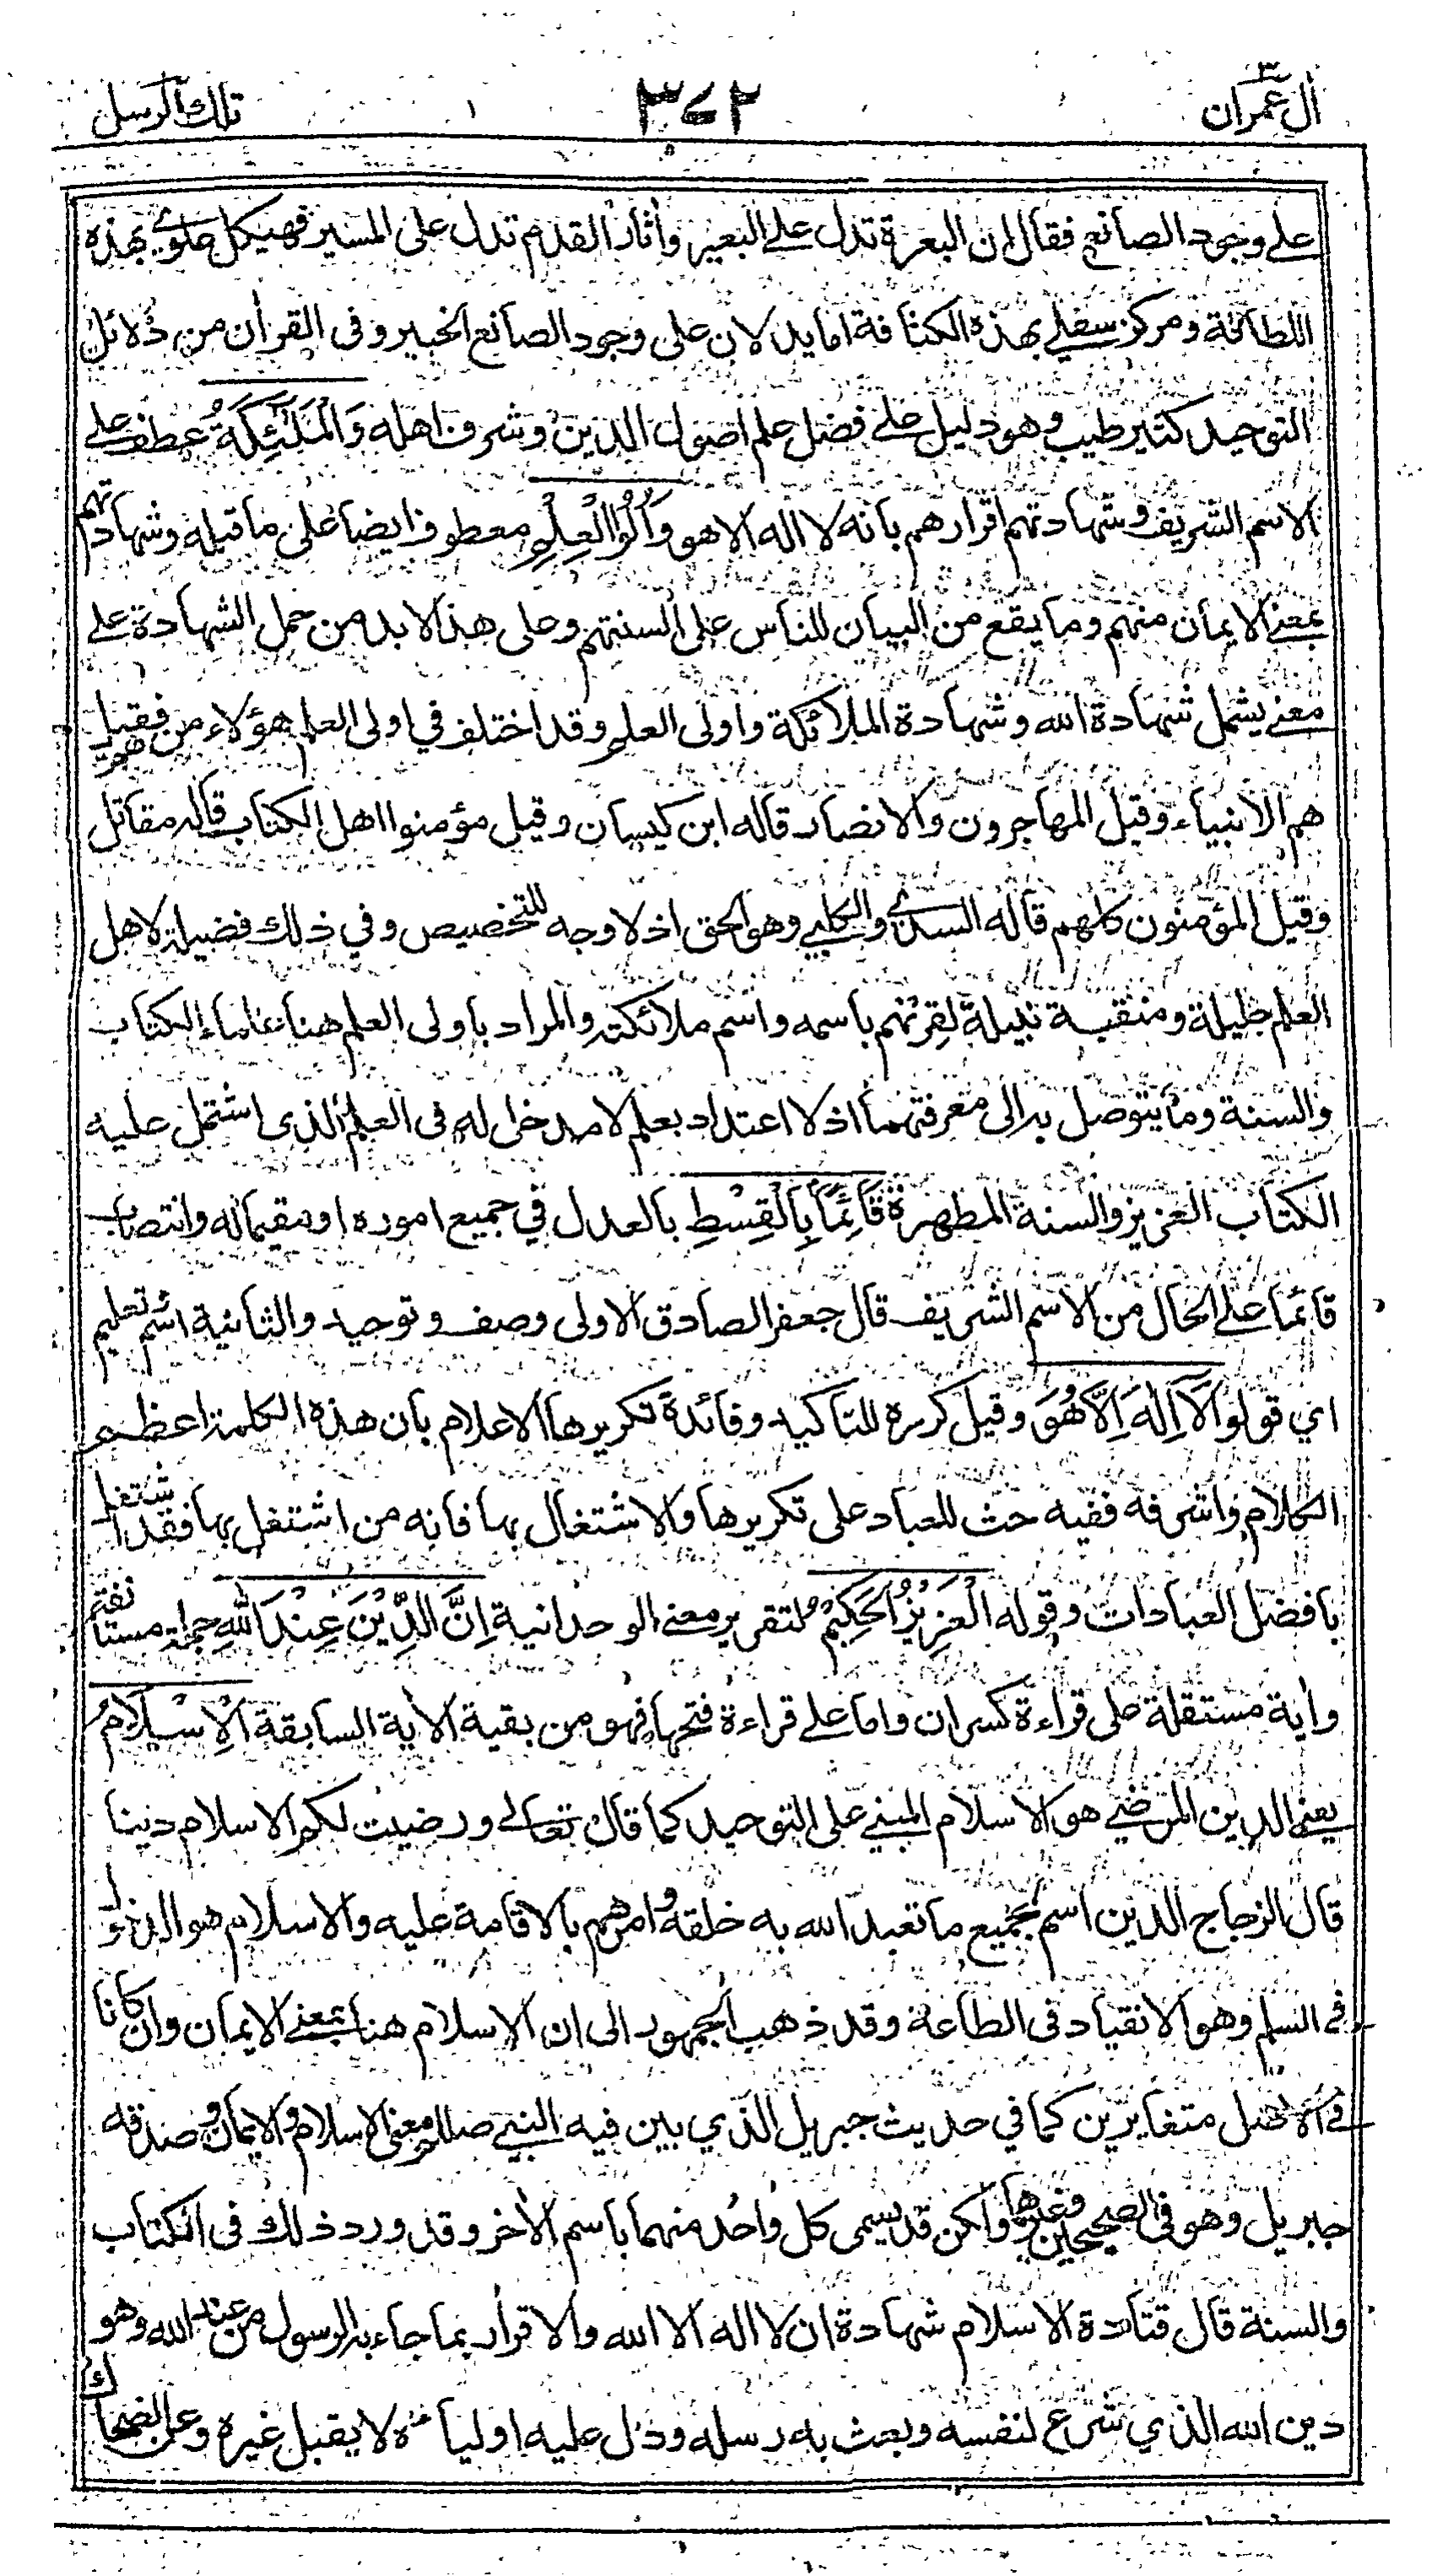 اٰل عمران ٣
٣٧٢
تلك الرسل
على وجود الصانع فقال ان البعرة تدل على البعير واٰثار القدم تدل على المسير فهيكل علوي بهذه
اللطافة ومركز سفلي بهذه الكثافة اما يدلان على وجود الصانع الخبير وفى القراٰن من دلائل
التوحيد كثير طيب وهو دليل على فضل علم اصول الدين وشرف اهله وَالْمَلٰٓئِكَةُ عطف على
الاسم الشريف وشهادتهم اقرارهم بانه لا اله الا هو وَاُولُوا الْعِلْمِ معطوف ايضا على ما قبله وشهادتهم
بمعنى الايمان منهم وما يقع من البيان للناس على السنتهم وعلى هذا لا بد من حمل الشهادة على
معنى يشمل شهادة الله وشهادة الملائكة واولى العلم وقد اختلف في اولى العلم هؤلاء من هم فقيل
هم الانبياء وقيل المهاجرون والانصار قاله ابن كيسان وقيل مؤمنوا اهل الكتاب قاله مقاتل
وقيل المؤمنون كلهم قاله السدي والكلبي وهو الحق اذ لا وجه للتخصيص وفي ذلك فضيلة لاهل
العلم جليلة ومنقبة نبيلة لقرنهم باسمه واسم ملائكته والمراد باولى العلم هنا علماء الكتاب
والسنة وما يتوصل به الى معرفتهما اذ لا اعتداد بعلم لا مدخل له فى العلم الذى اشتمل عليه
الكتاب العزيز والسنة المطهرة قَآئِمًا بِالْقِسْطِ بالعدل في جميع اموره او مقيما له وانتصاب
قائما على الحال من الاسم الشريف قال جعفر الصادق الاولى وصف وتوحيد والثانية اسم تعليم
اي قولوا لَآ اِلٰهَ اِلَّا هُوَ وقيل كرره للتاكيد وفائدة تكريرها الاعلام بان هذه الكلمة اعظم
الكلام واشرفه ففيه حث للعباد على تكريرها والاشتغال بها فانه من اشتغل بها فقد اشتغل
بافضل العبادات وقوله الْعَزِيْزُ الْحَكِيْمُ لتقرير معنى الوحدانية اِنَّ الدِّيْنَ عِنْدَ اللهِ جملة مستانفة
واٰية مستقلة على قراءة كسر ان واما على قراءة فتحها فهو من بقية الاٰية السابقة الْاِسْلَامُ
يعنى الدين المرضي هو الاسلام المبني على التوحيد كما قال تعالى ورضيت لكم الاسلام دينا
قال الزجاج الدين اسم لجميع ما تعبد الله به خلقه وامرهم بالاقامة عليه والاسلام هو الدخول
في السلم وهو الانقياد فى الطاعة وقد ذهب الجمهور الى ان الاسلام هنا بمعنى الايمان وان كانا
في الاصل متغايرين كما في حديث جبريل الذي بين فيه النبي صللم معنى الاسلام والايمان وصدقه
جبريل وهو فى الصحيحين وغيرهما ولكن قد يسمى كل واحد منهما باسم الاٰخر وقد ورد ذلك فى الكتاب
والسنة قال قتادة الاسلام شهادة ان لا اله الا الله والاقرار بما جاء به الرسول من عند الله وهو
دين الله الذي شرع لنفسه وبعث به رسله ودل عليه اولياءه لا يقبل غيره وعن الضحاك